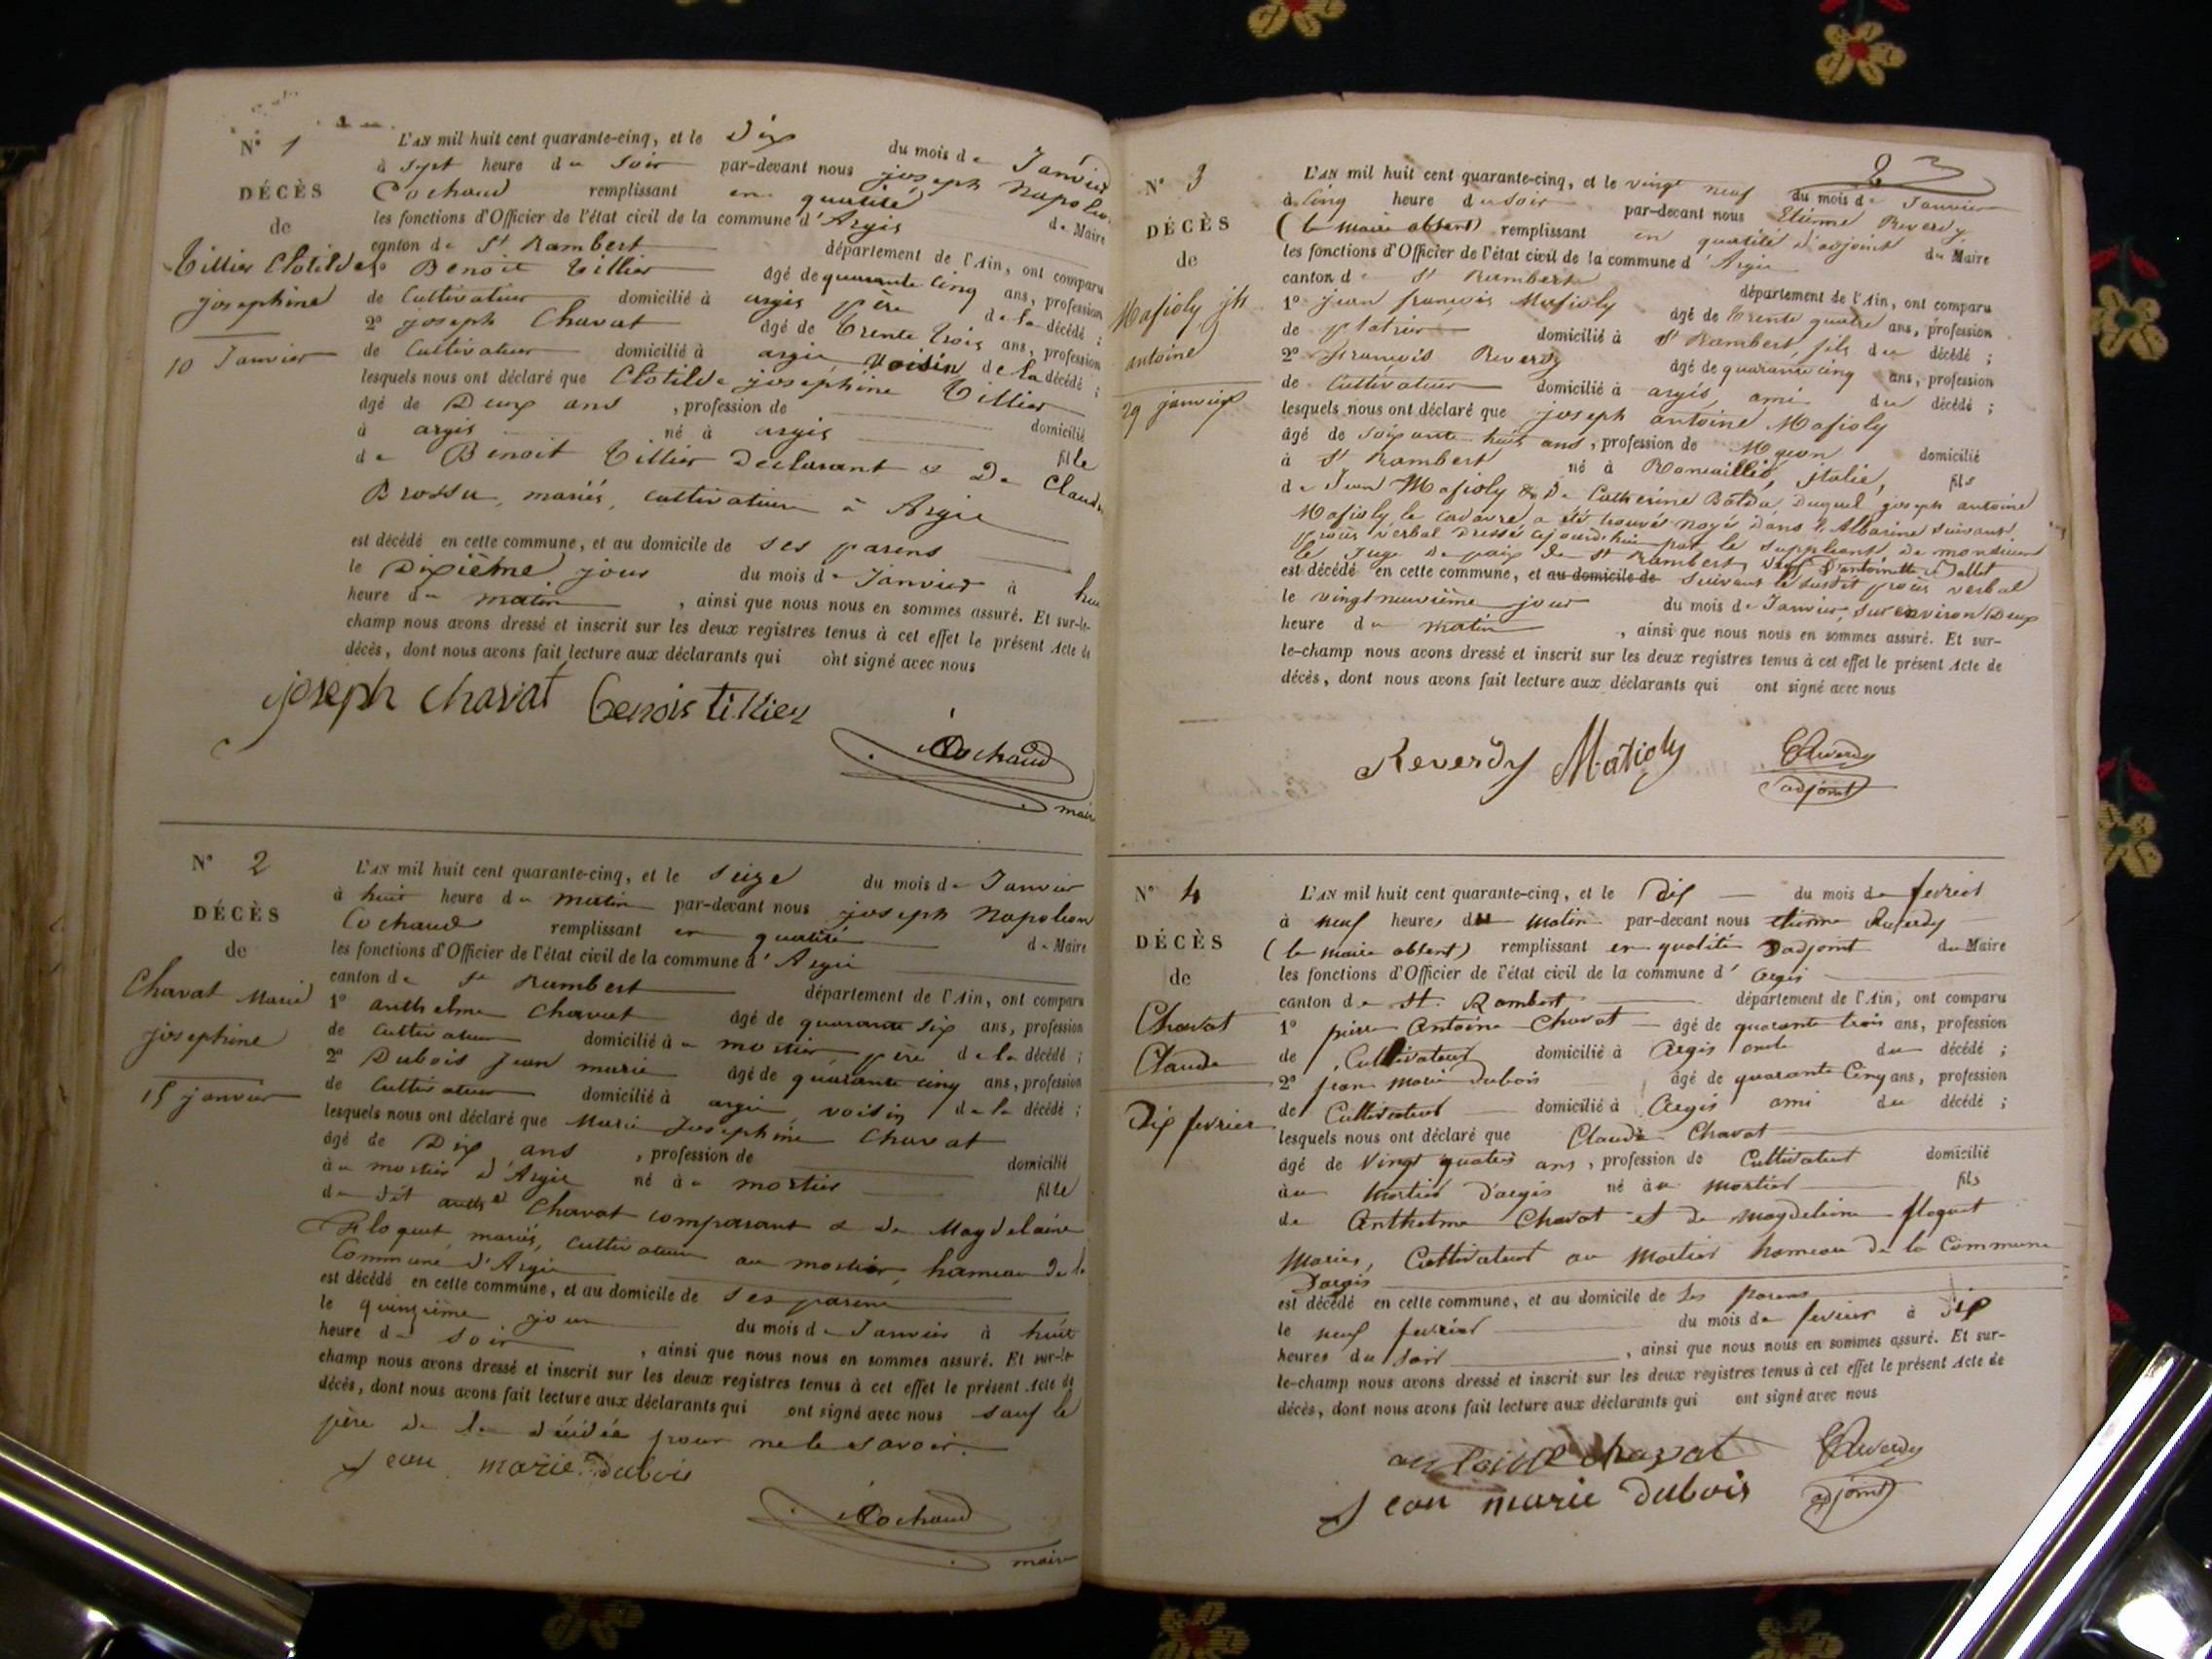 N° 1
DÉCÈS
de
Tillier Clotilde
josephine
10 Janvier
L'AN mil huit cent quarante-cinq, et le Dix du mois de Janvier
à sept heure du soir par-devant nous joseph Napoleon
Cochaud remplissant en qualité de Maire
les fonctions d'Officier de l'état civil de la commune d'Argis
canton de St Rambert département de l'Ain, ont comparu
1° Benoit Tillier âgé de quarante cinq ans, profession
de Cultivateur domicilié à argis père de la décédé ;
2° joseph Chavat âgé de trente trois ans, profession
de Cultivateur domicilié à argis, voisin de la décédé ;
lesquels nous ont déclaré que Clotilde josephine Tillier
âgé de Deux ans , profession de domicilié
à argis né à argis fille
de Benoit Tillier declarant & De Claudine
Brossu, mariés, cultivateurs à Argis
est décédé en cette commune, et au domicile de ses parens
le Dixième jour du mois de Janvier à
heure du matin , ainsi que nous nous en sommes assuré. Et sur-le-
champ nous avons dressé et inscrit sur les deux registres tenus à cet effet le présent Acte de
décès, dont nous avons fait lecture aux déclarants qui ont signé avec nous
joseph chavat benois tillier
Cochaud
maire
N° 2
DÉCÈS
de
Chavat Marie
josephine
15 janvier
L'AN mil huit cent quarante-cinq, et le seize du mois de Janvier
à huit heure du matin par-devant nous joseph Napoleon
Cochaud remplissant en qualité de Maire
les fonctions d'Officier de l'état civil de la commune d'Argis
canton de St Rambert département de l'Ain, ont comparu
1° anthelme Chavat âgé de quarante six ans, profession
de Cultivateur domicilié à u mortier, père de la décédé ;
2° Dubois Jean marie âgé de quarante cinq ans, profession
de Cultivateur domicilié à argis, voisin de la décédé ;
lesquels nous ont déclaré que Marie Josephine Chavat
âgé de Dix ans , profession de domicilié
à u mortier d'Argis né à u mortier fille
du dit anthe Chavat comparant & de Magdelaine
Floquet, mariés, cultivateurs au mortier, hameau de la
Commune d'Argis
est décédé en cette commune, et au domicile de ses parens
le quinzième jour du mois de Janvier à huit
heure du soir , ainsi que nous nous en sommes assuré. Et sur-le-
champ nous avons dressé et inscrit sur les deux registres tenus à cet effet le présent Acte de
décès, dont nous avons fait lecture aux déclarants qui ont signé avec nous sauf le
père de la décédée pour ne le savoir.
Jean marie Dubois
Cochaud
maire
2 3
N° 3
DÉCÈS
de
Mafioly jh
antoine
29 janvier
L'AN mil huit cent quarante-cinq, et le vingt neuf du mois de Janvier
à Cinq heure du soir par-devant nous Etienne Reverdy
(le maire absent) remplissant en qualité d'adjoint du Maire
les fonctions d'Officier de l'état civil de la commune d'Argis
canton de St Rambert département de l'Ain, ont comparu
1° jean françois Mafioly âgé de trente quatre ans, profession
de platrier domicilié à St Rambert, fils du décédé ;
2° François Reverdy âgé de quarante cinq ans, profession
de Cultivateur domicilié à argis, ami du décédé ;
lesquels nous ont déclaré que joseph antoine Mafioly
âgé de soixante huit ans, profession de Maçon domicilié
à St Rambert né à italie, fils
de Jean Mafioly & De Catherine Duquel joseph antoine
Mafioly le cadavre a été trouvé noyé dans l'Albarine suivant
procès verbal dressé ajourdhui par le suppleant de monsieur
le Juge De paix de St Rambert, veuf D'antoinette
est décédé en cette commune, et au domicile de suivant le susdit procès verbal
le vingt neuvième jour du mois de Janvier, sur environ Deux
heure du matin , ainsi que nous nous en sommes assuré. Et sur-
le-champ nous avons dressé et inscrit sur les deux registres tenus à cet effet le présent Acte de
décès, dont nous avons fait lecture aux déclarants qui ont signé avec nous
Reverdy Mafioly EReverdy
adjoint
N° 4
DÉCÈS
de
Chavat
Claude
Dix fevrier
L'AN mil huit cent quarante-cinq, et le Dix du mois de fevrier
à neuf heures du matin par-devant nous etienne Reverdy
(le maire absent) remplissant en qualité Dadjoint du Maire
les fonctions d'Officier de l'état civil de la commune d'Argis
canton de St. Rambert département de l'Ain, ont comparu
1° pierre Antoine Chavat âgé de quarante trois ans, profession
de Cultivateur domicilié à Argis oncle du décédé ;
2° jean marie dubois âgé de quarante Cinq ans, profession
de Cultivateur domicilié à Argis ami du décédé ;
lesquels nous ont déclaré que Claude Chavat
âgé de Vingt quatre ans, profession de Cultivateur domicilié
à u Mortier d'argis né à u Mortier fils
de Anthelme Chavat et de magdeleine floquet
Mariés, Cultivateurs au Mortier hameau de la Commune
Dargis
est décédé en cette commune, et au domicile de ses parens
le neuf fevrier du mois de fevrier à dix
heures du soir , ainsi que nous nous en sommes assuré. Et sur-
le-champ nous avons dressé et inscrit sur les deux registres tenus à cet effet le présent Acte de
décès, dont nous avons fait lecture aux déclarants qui ont signé avec nous
antoine chavat EReverdy
Jean marie Dubois adjoint